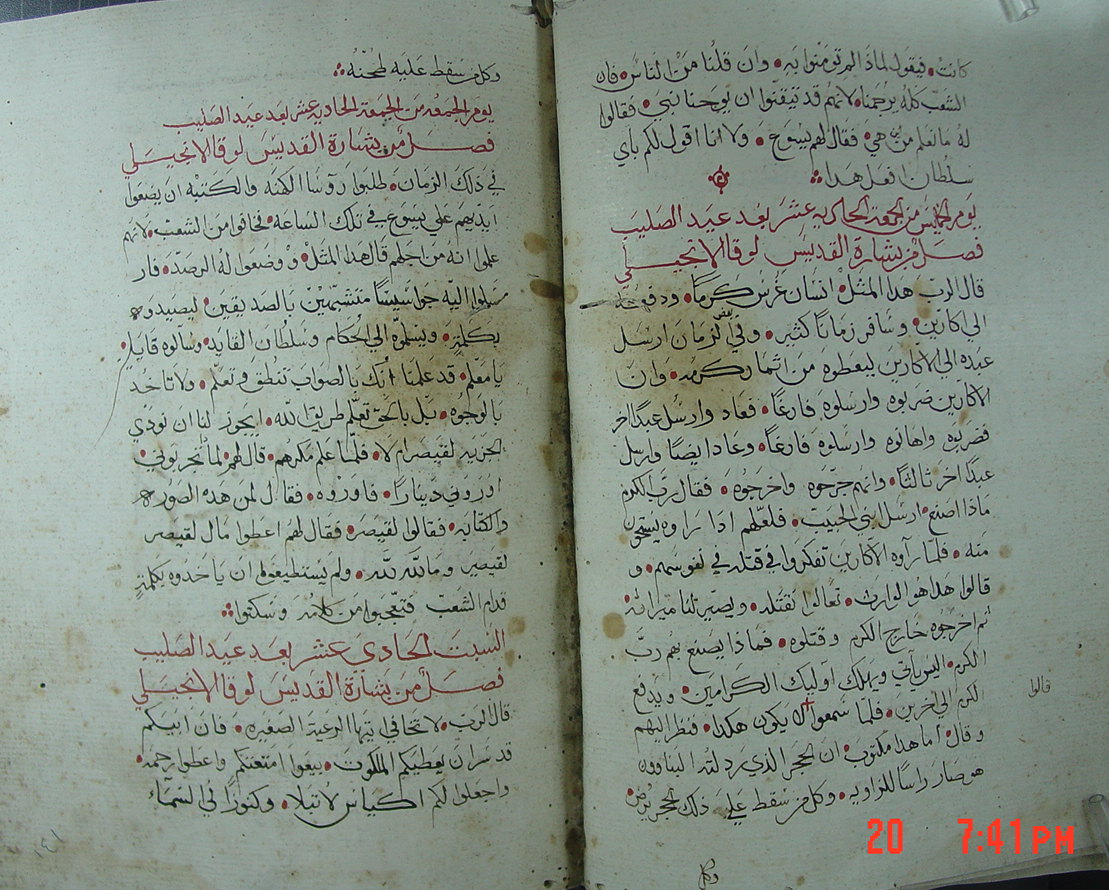 كانت • فيقول لماذا لم تومنوا به • وان قلنا من الناس • فان
الشعب كله يرجمنا • لانهم قد تيقنوا ان يوحنا نبي • فقالوا
له ما نعلم من اين هي • فقال لهم يسوع • ولا انا اقول لكم باي
سلطان افعل هذا
يوم الخميس من الجمعة الحاديه عشر بعد عيد الصليب
فصل من بشارة القديس لوقا الانجيلي
قال الرب هذا المثل • انسان غرس كرما • ودفعه
الي كارين • وسافر زمانا كثير • وفي الزمان ارسل
عبده الي الاكارين ليعطوه من اثمار كرمه • وان
الاكارين ضربوه وارسلوه فارغا • فعاد وارسل عبدا اخر
فضربوه واهانوه وارسلوه فارغا • وعاد ايضا وارسل
عبدا اخر ثالثا • وانهم جرحوه واخرجوه • فقال رب الكرم
ماذا اصنع • ارسل ابني الحبيب • فلعلهم اذا راوه يستحون
منه • فلما راوه الاكارين تفكروا في قتله في نفوسهم • و
قالوا هذا هو الوارث • تعالوا نقتله • ويصير لنا ميراثه
ثم اخرجوه خارج الكرم وقتلوه • فماذا يصنع بهم رب
الكرم • اليس ياتي ويهلك اوليك الكرامين • ويدفع
الكرم الي اخرين • فلما سمعوا لا يكون هكذا • فنظر اليهم
قالوا
وقال • اما هذا مكتوب • ان الحجر الذي رذلته البناوون
هو صار راسا للزاويه • وكل من سقط علي ذلك الحجر يرض •
وكل
وكل من سقط عليه طحنه
يوم الجمعه من الجمعة الحاديه عشر بعد عيد الصليب
فصل من بشارة القديس لوقا الانجيلي
في ذلك الزمان • طلبوا روسا الكهنه والكتبه ان يضعوا
ايديهم علي يسوع في تلك الساعه • فخافوا من الشعب • لانهم
علموا انه من اجلهم قال هذا المثل • ووضعوا له الرصد • فار
سلوا اليه جواسيسا متشبهين بالصديقين • ليصيدوه
بكلمة • ويسلموه الي الحكام وسلطان القايد • وسالوه قايلين •
يا معلم • قد علمنا انك بالصواب تنطق وتعلم • ولا تاخذ
بالوجوه • بل بالحق تعلم طريق الله • ايجوز لنا ان نودي
الجزيه لقيصر ام لا • فلما علم مكرهم • قال لهم لما تجربوني
اوروني دينارا • فاوروه • فقال لمن هذه الصوره
والكتابه • فقالوا لقيصر • فقال لهم اعطوا مال لقيصر
لقيصر وما لله لله • ولم يستطيعوا ان ياخدوه بكلمة
قدام الشعب فتعجبوا من كلامه وسكتوا
السبت الحادي عشر بعد عيد الصليب
فصل من بشارة القديس لوقا الانجيلي
قال الرب • لا تخافي ايتها الرعية الصغيره • فان ابيكم
قد سر ان يعطيكم الملكوت • بيعوا امتعتكم واعطوا رحمه •
واجعلوا لكم اكياس لا تبلا • وكنوزا في السماء
١٤١
20 7:41 PM